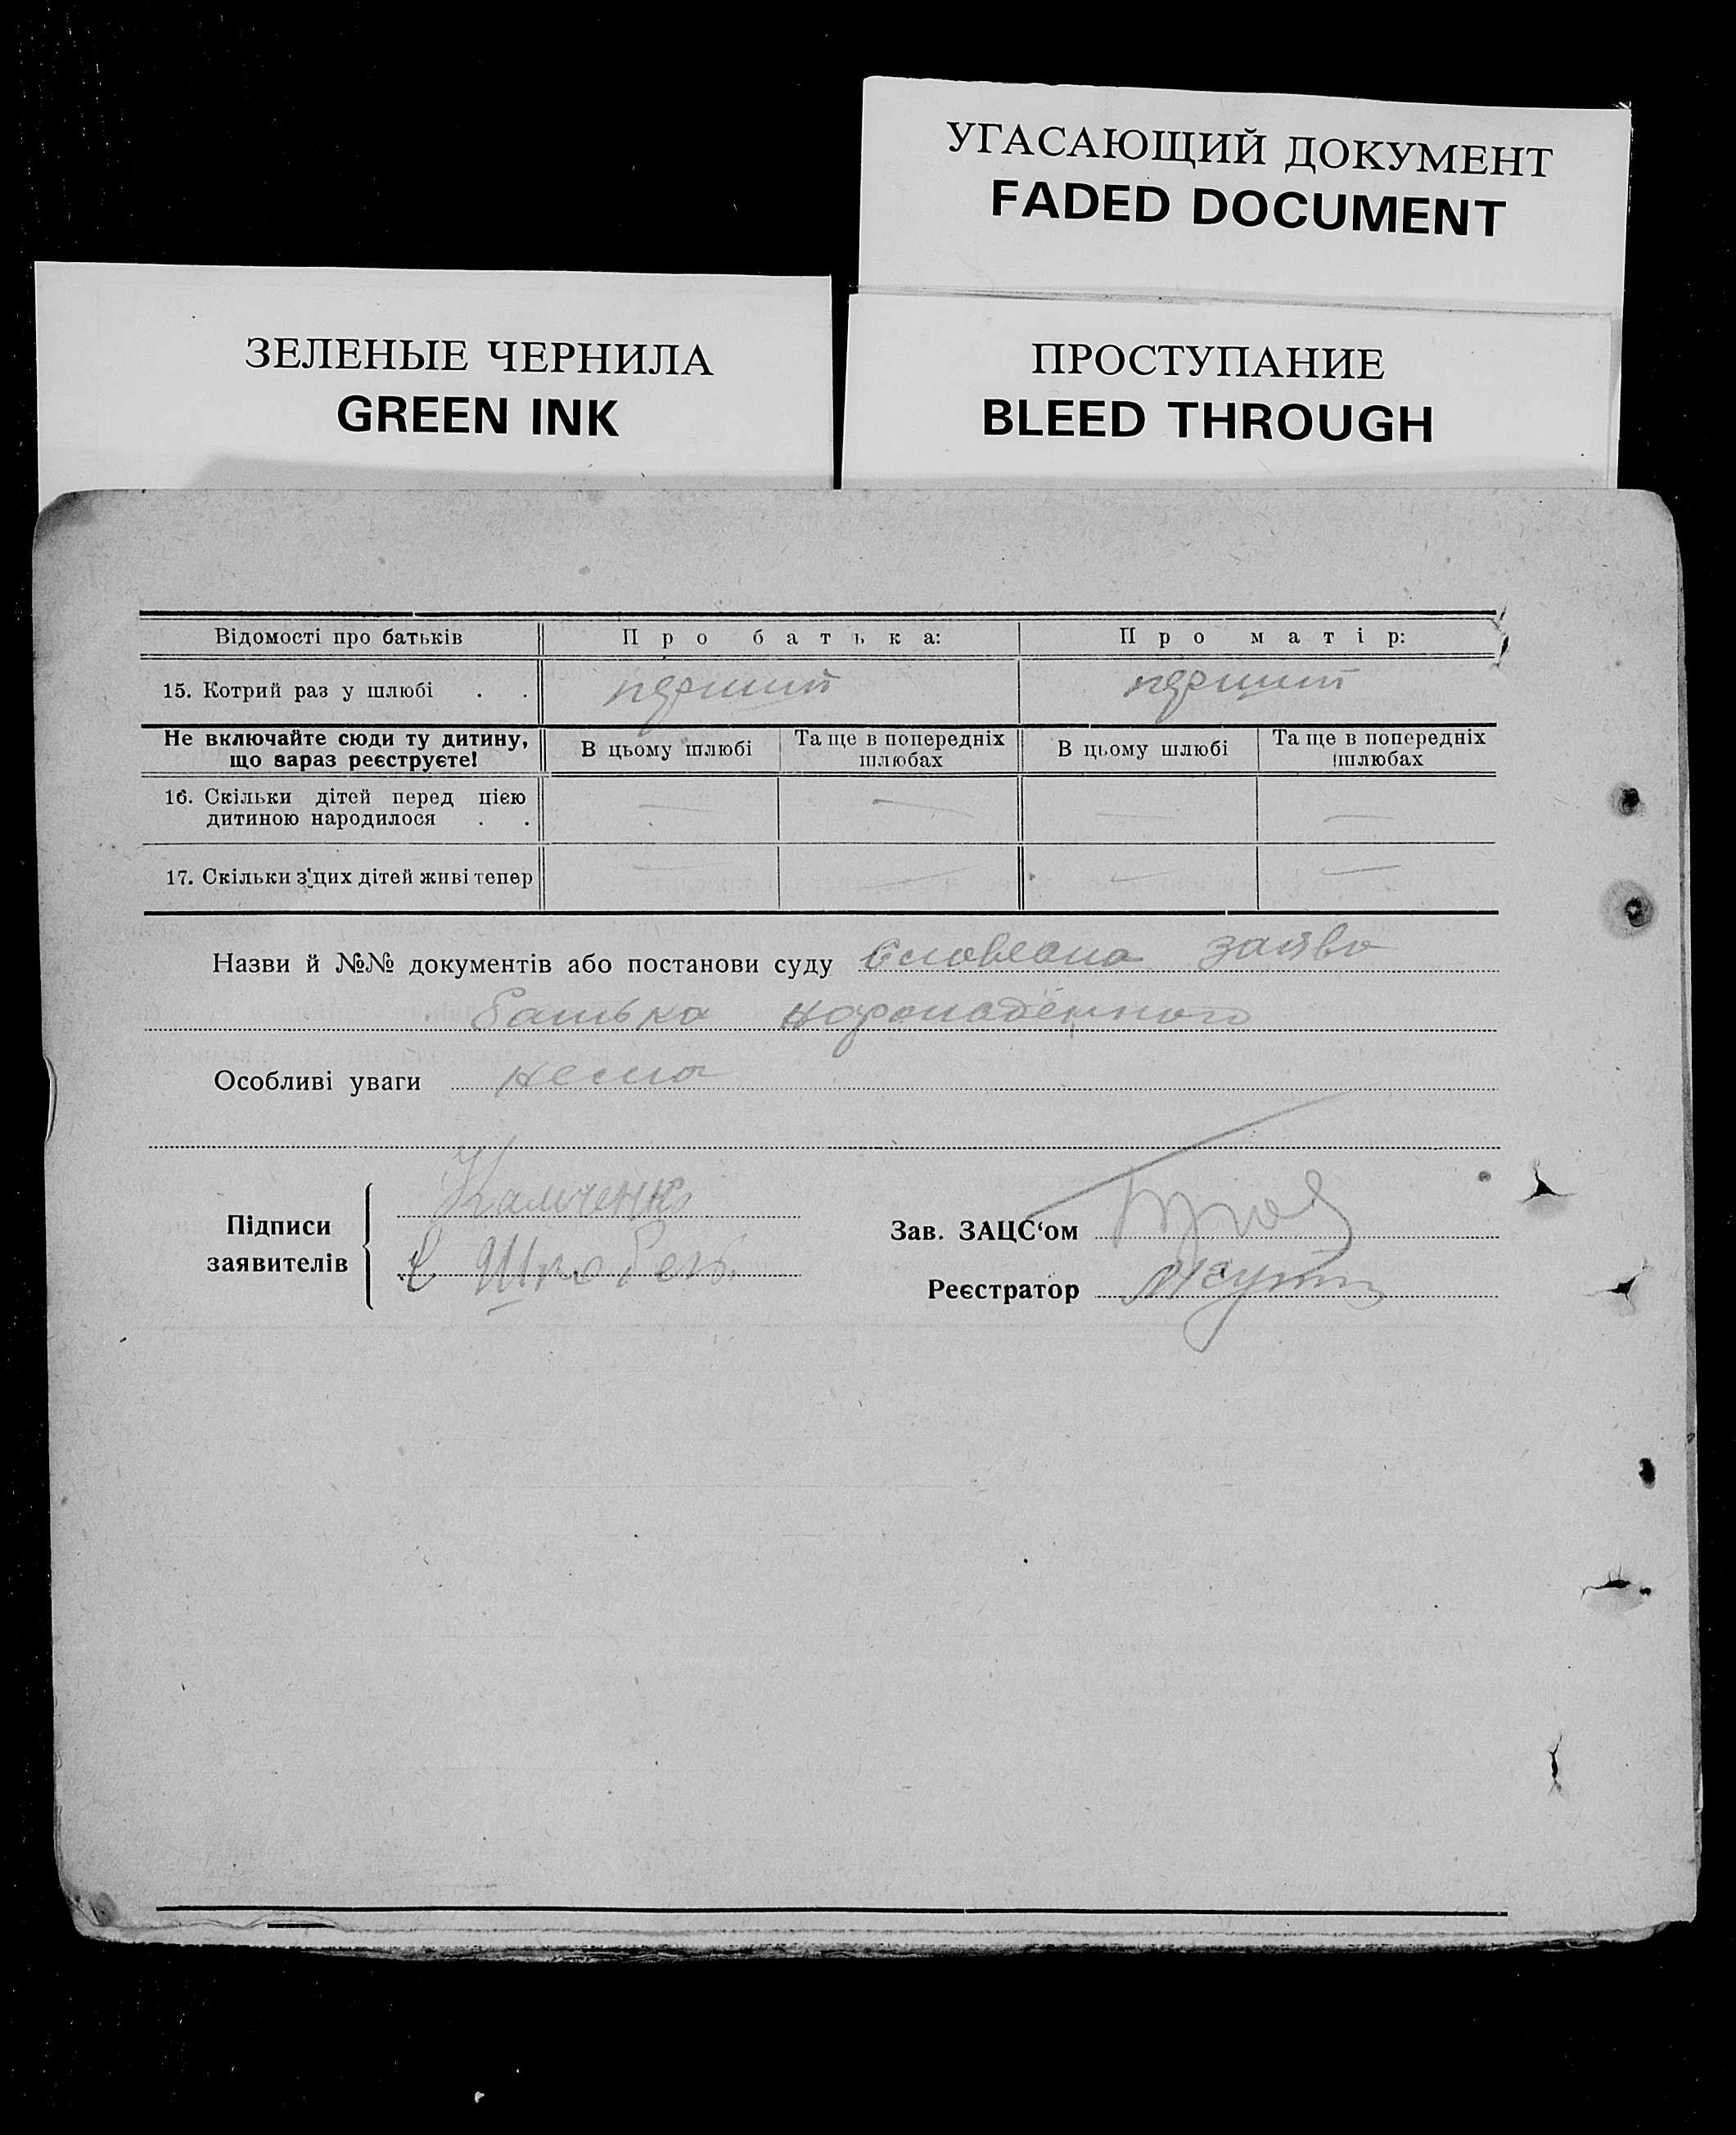 УГАСАЮЩИЙ ДОКУМЕНТ
FADED DOCUMENT
ЗЕЛЕНЫЕ ЧЕРНИЛА
GREEN INK
ПРОСТУПАНИЕ
BLEED THROUGH
Відомості про батьків Про батька: Про матір:
15. Котрий раз у шлюбі . . перший перший
Не включайте сюди ту дитину, що зараз реєструєте! В цьому шлюбі Та ще в попередніх шлюбах В цьому шлюбі Та ще в попередніх шлюбах
16. Скільки дітей перед цією — — — —
дитиною народилося . .
17. Скільки з цих дітей живі тепер — — — —
Назви й №№ документів або постанови суду заява
батька
Особливі уваги нема
Підписи заявителів
Зав. ЗАЦС‘ом
Реєстратор